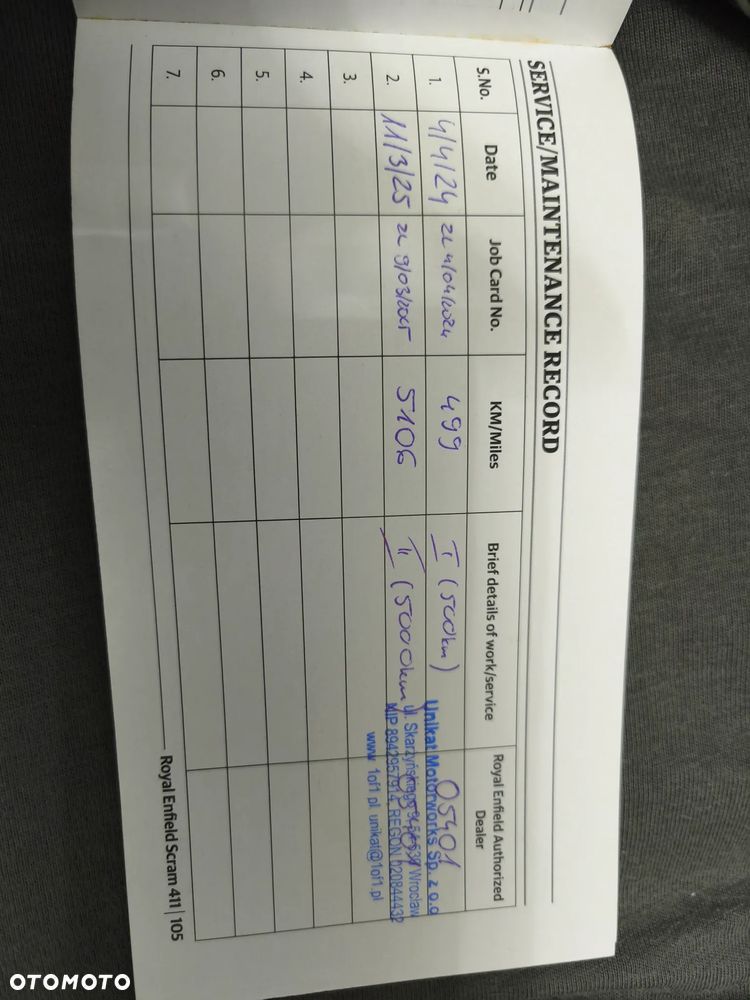 SERVICE/MAINTENANCE RECORD
S.No. Date Job Card No. KM/Miles Brief details of work/service Royal Enfield Authorized Dealer
1. 4/4/24 ZL 4/04/2024 499 I (500km) 05401
2. 11/3/25 ZL 9/03/2025 5106 II (5000km)
3.
4.
5.
6.
7.
Unikat Motorworks Sp. z o.o
Ul. Skarżyńskiego Wrocław
NIP 8942957914, REGON 020844432
www.1of1.pl, unikat@1of1.pl
Royal Enfield Scram 411 | 105
OTOMOTO